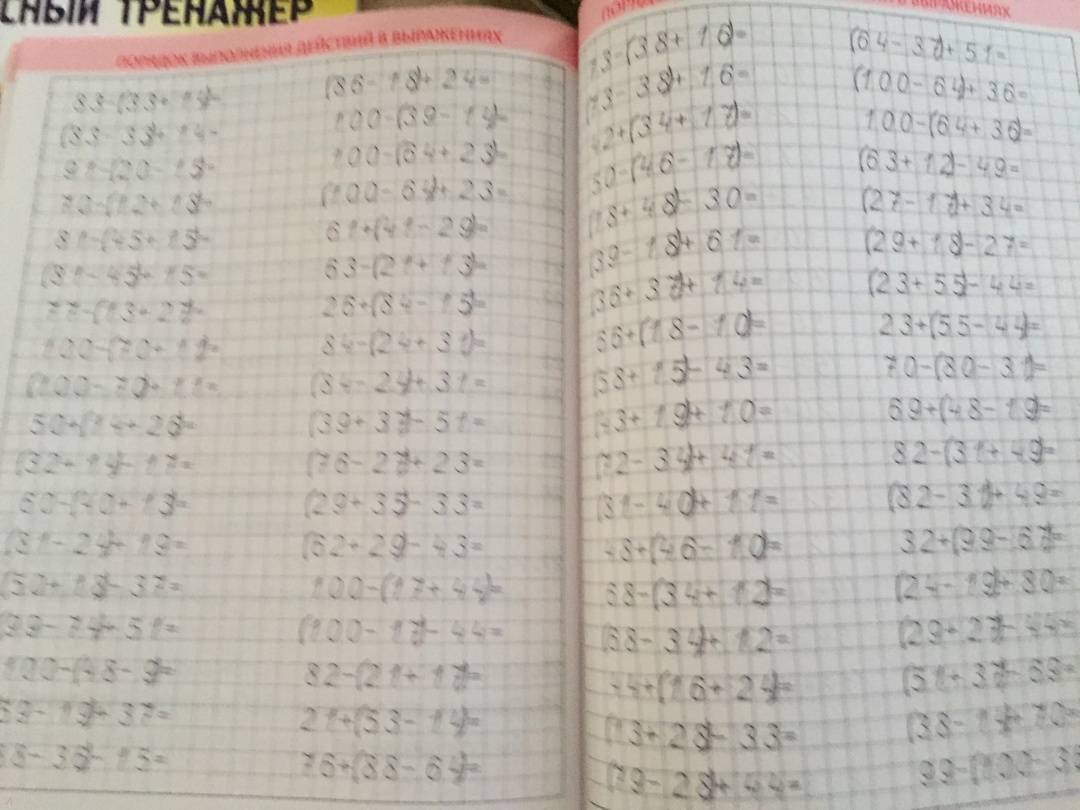 СНЫЙ ТРЕНАЖЁР
ПОРЯДОК ВЫПОЛНЕНИЯ ДЕЙСТВИЙ В ВЫРАЖЕНИЯХ
83-(33+14)=
(83-33)+14=
91-(20-15)=
70-(12+18)=
81-(45+15)=
(81-45)+15=
77-(13+27)=
100-(70+11)=
(100-70)+11=
50+(14+26)=
(32+14)-17=
60-(40+13)=
(81-24)-19=
(50+18)-37=
(99-74)+51=
100-(48-9)=
59-19)+37=
68-36)-15=
(86-18)+24=
100-(39-14)=
100-(64+23)=
(100-64)+23=
61+(41-29)=
63-(21+13)=
26+(34-15)=
84-(24+31)=
(84-24)+31=
(39+37)-51=
(76-27)+23=
(29+35)-33=
(62+29)-43=
100-(17+44)=
(100-17)-44=
82-(21+17)=
21+(53-14)=
76+(88-64)=
В ВЫРАЖЕНИЯХ
73-(38+16)=
(73-38)+16=
42+(34+17)=
50-(46-17)=
(18+48)-30=
(39-18)+61=
(36+37)+14=
66+(18-10)=
(58+15)-43=
(43+19)+10=
(72-34)+41=
(81-40)+11=
48+(46-10)=
68-(34+12)=
(68-34)+12=
44+(16+24)=
(13+28)-33=
(79-28)+44=
(64-37)+51=
(100-64)+36=
100-(64+36)=
(63+12)-49=
(27-17)+34=
(29+18)-27=
(23+55)-44=
23+(55-44)=
70-(80-31)=
69+(48-19)=
82-(31+49)=
(82-31)+49=
32+(99-67)=
(24-19)+80=
(29+27)-44=
(51+37)-69=
(38-14)+70=
99-(100-38